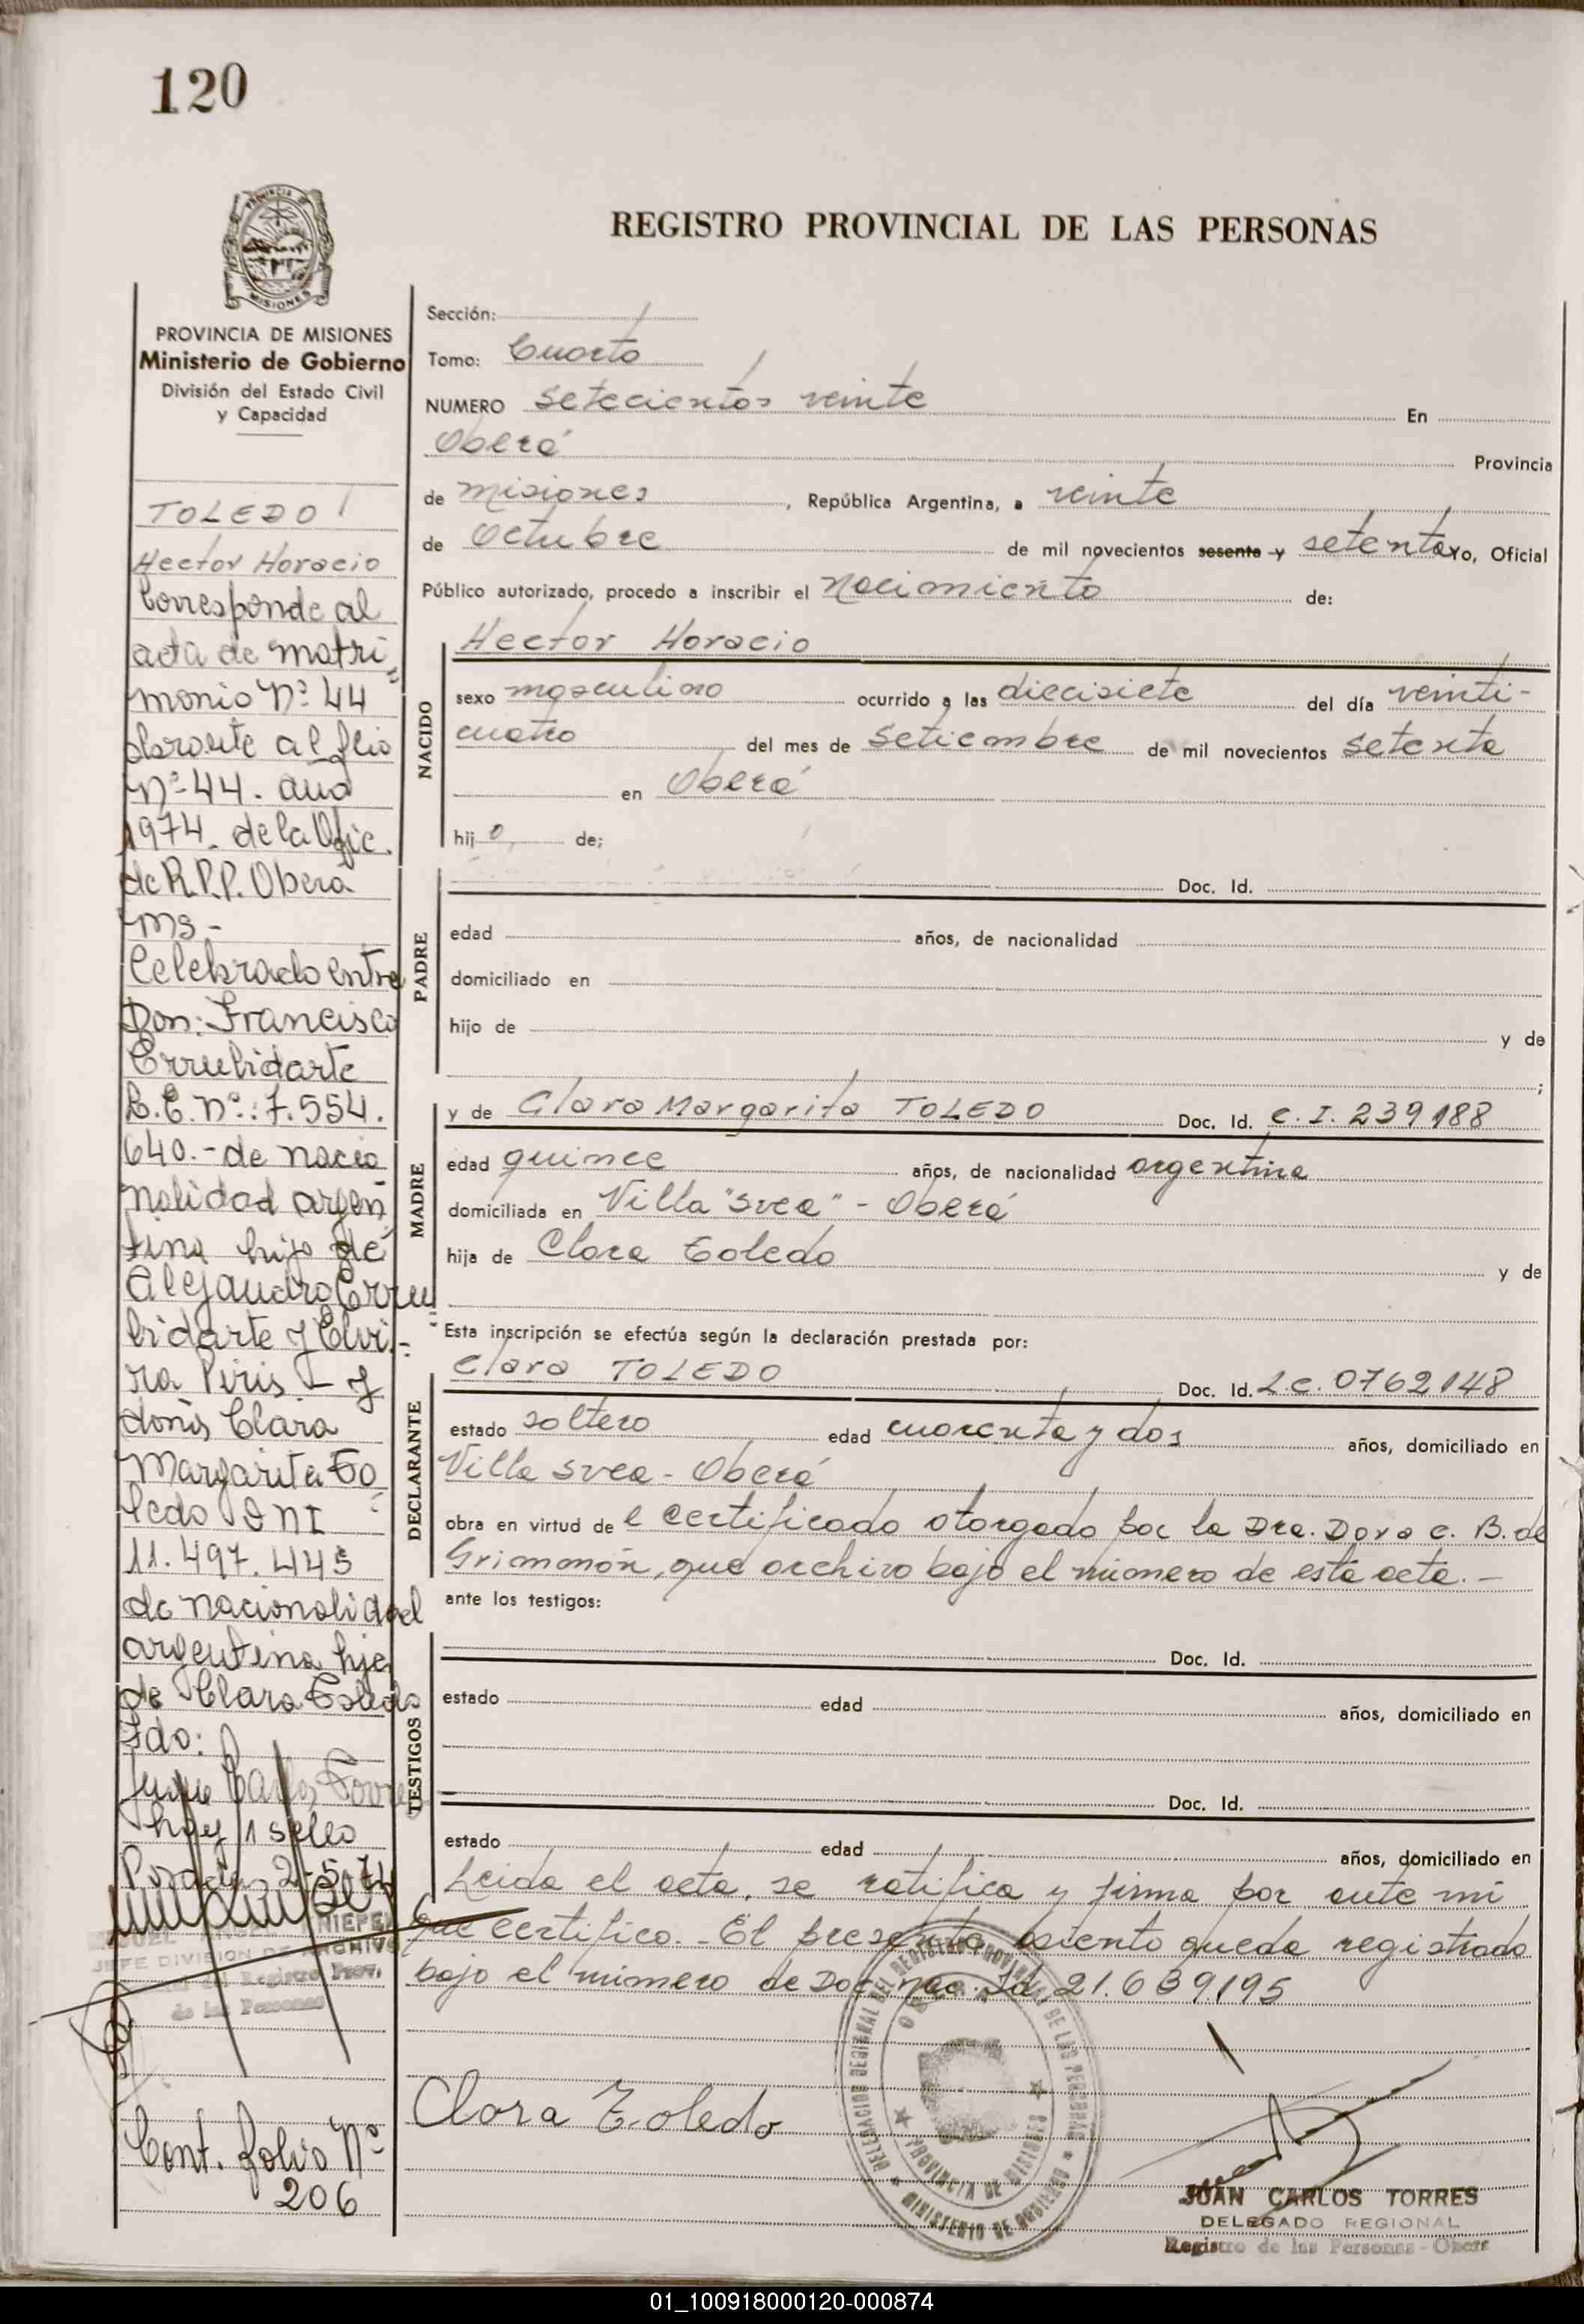 120
PROVINCIA DE MISIONES
Ministerio de Gobierno
División del Estado Civil
y Capacidad
TOLEDO
Hector Horacio
Corresponde al
acta de matri
monio Nº 44
obrante al flio
Nº 44. año
1974. de la Ofic.
de R.P.P. Obera
Ms -
Celebrado entre
Don: Francisco
Errubidarte
L.E. Nº: 7.554.
640.- de nacio
nalidad argen
tina hijo de
Alejandro Erru
bidarte y Elvi-
ra Piris - y
doña Clara
Margarita To
ledo DNI
11.497.445
de nacionalidad
argentina hija
de Clara Toledo
Fdo:
Juan Carlos Torres
hay 1 sello
Posadas 2-5-74
JEFE DIVISION DE ARCHIVO
del Registro Prov.
de las Personas
Cont. folio Nº
206
REGISTRO PROVINCIAL DE LAS PERSONAS
Sección:
Tomo: Cuarto
NUMERO setecientos veinte En
Oberá Provincia
de misiones, República Argentina, a veinte
de Octubre de mil novecientos sesenta y setenta yo, Oficial
Público autorizado, procedo a inscribir el nacimiento de:
NACIDO
Hector Horacio
sexo masculino ocurrido a las diecisiete del día veinti-
cuatro del mes de setiembre de mil novecientos setenta
en Oberá
hij o de;
PADRE
Doc. Id.
edad años, de nacionalidad
domiciliado en
hijo de y de
;
MADRE
y de Clara Margarita TOLEDO Doc. Id. C. I. 239188
edad quince años, de nacionalidad argentina
domiciliada en Villa "Svea" - Oberá
hija de Clara Toledo y de
Esta inscripción se efectúa según la declaración prestada por:
DECLARANTE
Clara TOLEDO Doc. Id. L.C. 0762148
estado soltera edad cuarenta y dos años, domiciliado en
Villa Svea - Oberá
obra en virtud de l certificado otorgado por la Dra. Dora C. B. de
Grimmón, que archivo bajo el número de esta acta. -
ante los testigos:
TESTIGOS
Doc. Id.
estado edad años, domiciliado en
Doc. Id.
estado edad años, domiciliado en
Leida el acta, se ratifica y firma por ante mi
que certifico. - El presente asiento queda registrado
bajo el número de Doc. Nac. Id. 21.639.195
Clara Toledo
DELEGACION REGIONAL DEL REGISTRO PROVINCIAL DE LAS PERSONAS
MINISTERIO DE GOBIERNO
PROVINCIA DE MISIONES
JUAN CARLOS TORRES
DELEGADO REGIONAL
Registro de las Personas - Oberá
01_100918000120-000874